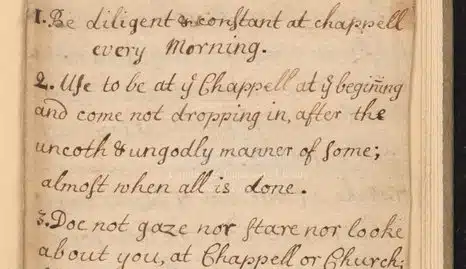 1. Be diligent & constant at chappell
every Morning.
2. Uſe to be at yͤ Chappell at yͤ begiñing
and come not dropping in, after the
uncoth & ungodly manner of ſome;
almoſt when all is done.
3. Doe not gaze nor ſtare nor looke
about you, at Chappell or Church;